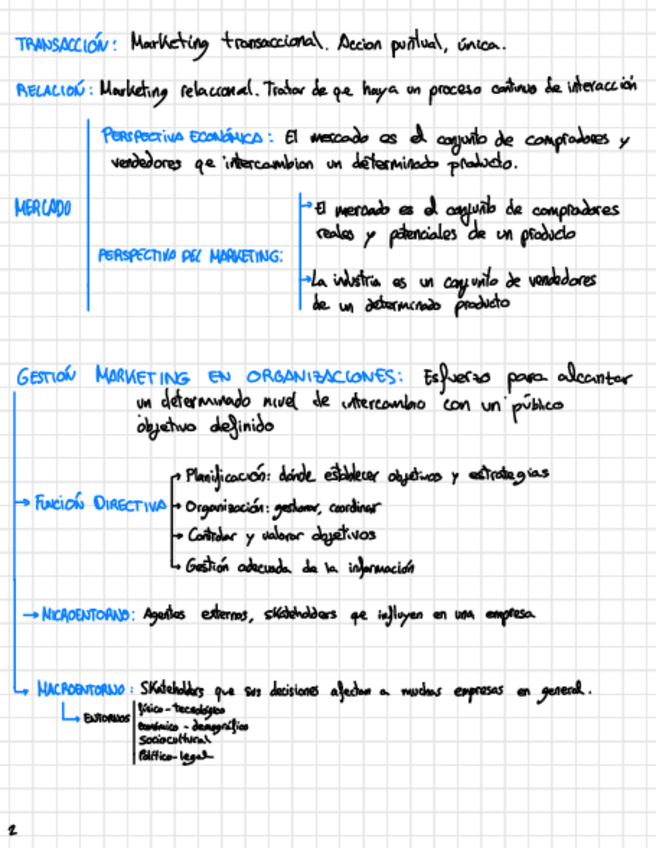 TRANSACCIÓN: Marketing transaccional. Accion puntual, única.
RELACIÓN: Marketing relaccional. Tratar de qe haya un proceso continuo de interacción
PERSPECTIVA ECONÓMICA: El mercado es el conjunto de compradores y
vendedores qe intercambian un determinado producto.
MERCADO
El mercado es el conjunto de compradores
reales y potenciales de un producto
PERSPECTIVA DEL MARKETING:
La industria es un conjunto de vendedores
de un determinado producto
GESTIÓN MARKETING EN ORGANIZACIONES: Esfuerzo para alcantar
un determinado nivel de intercambio con un público
objetivo definido
Planificación: dónde establecer objetivos y estrategias
FUNCIÓN DIRECTIVA
Organización: gestionar, coordinar
Controlar y valorar objetivos
Gestión adecuada de la información
MICROENTORNO: Agentes externos, skateholders qe influyen en una empresa
MACROENTORNO: SKateholders que sus decisiones afectan a muchas empresas en general.
ENTORNOS
físico-tecnológico
económico-demográfico
Sociocultural
Político-legal
2